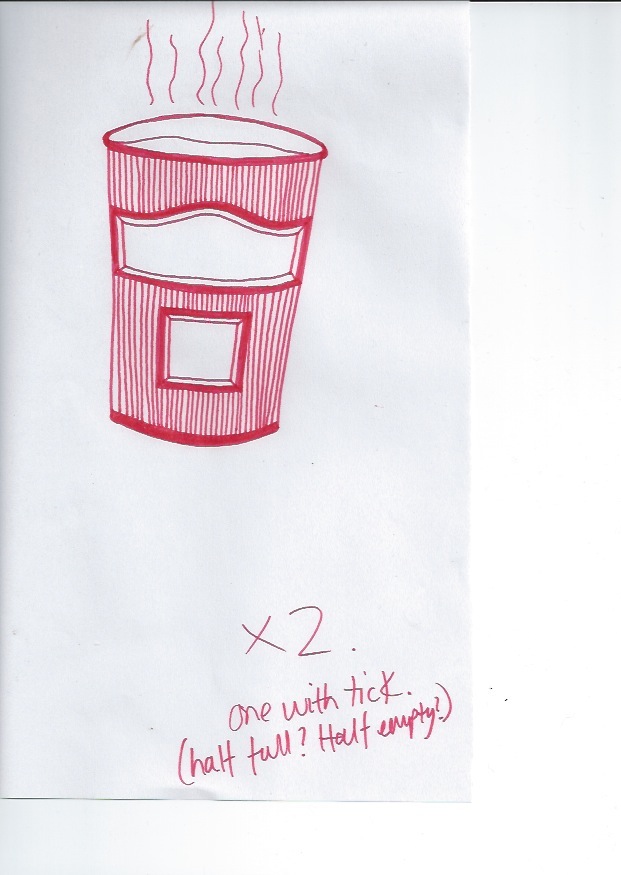 x2.
one with tick.
(half full? Half empty?)